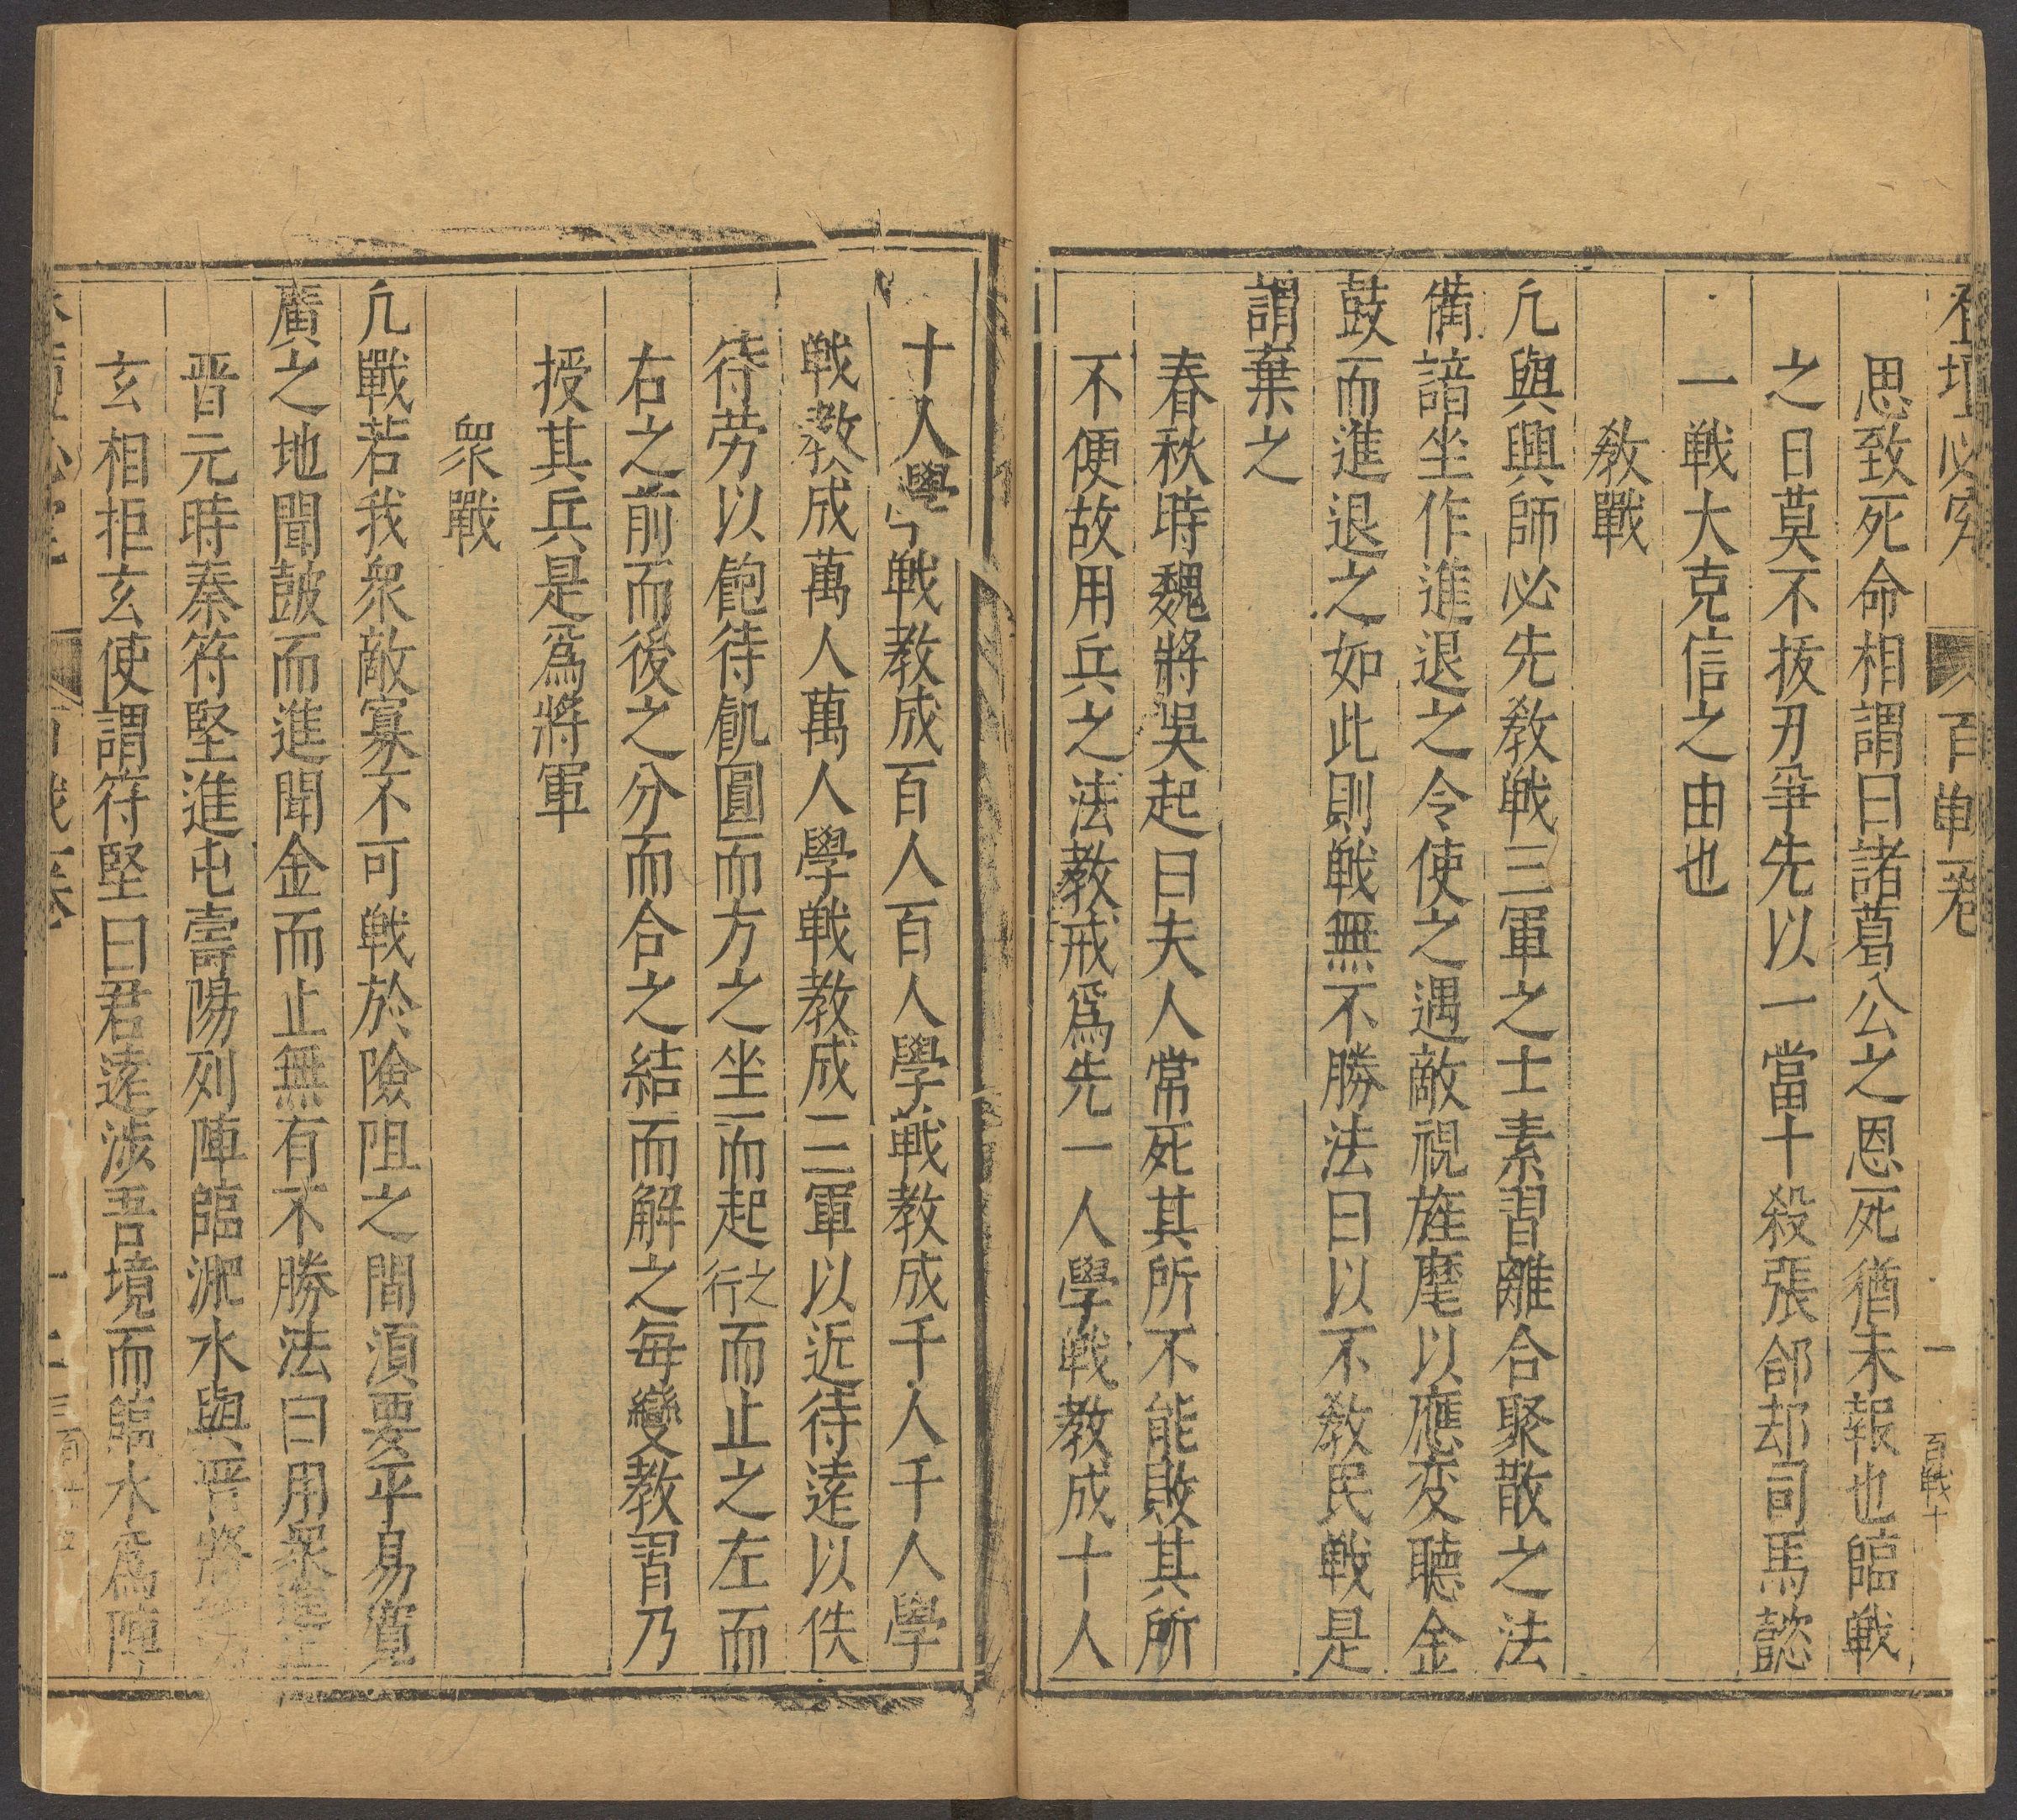 登壇必究 百戰一卷 一 百戰十
思致死命相謂曰諸葛公之恩死猶未報也臨戰
之日莫不拔刃爭先以一當十殺張郃却司馬懿
一戰大克信之由也
教戰
凢與興師必先教戰三軍之士素習離合聚散之法
備諳坐作進退之令使之遇敵視旌麾以應变聽金
鼓而進退之如此則戰無不勝法曰以不教民戰是
謂棄之
春秋時魏將吳起曰夫人常死其所不能敗其所
不便故用兵之法教戒爲先一人學戰教成十人
十人學戰教成百人百人學戰教成千人千人學
戰教成萬人萬人學戰教成三軍以近待遠以佚
待劳以飽待飢圓而方之坐而起之行而止之左而
右之前而後之分而合之結而解之每變教習乃
授其兵是爲將軍
衆戰
凢戰若我衆敵寡不可戰於險阻之間須要平易寬
廣之地聞皷而進聞金而止無有不勝法曰用衆進止
晋元時秦符堅進屯壽陽列陣臨淝水與晋將
玄相拒玄使謂符堅曰君遠涉吾境而臨水爲陣